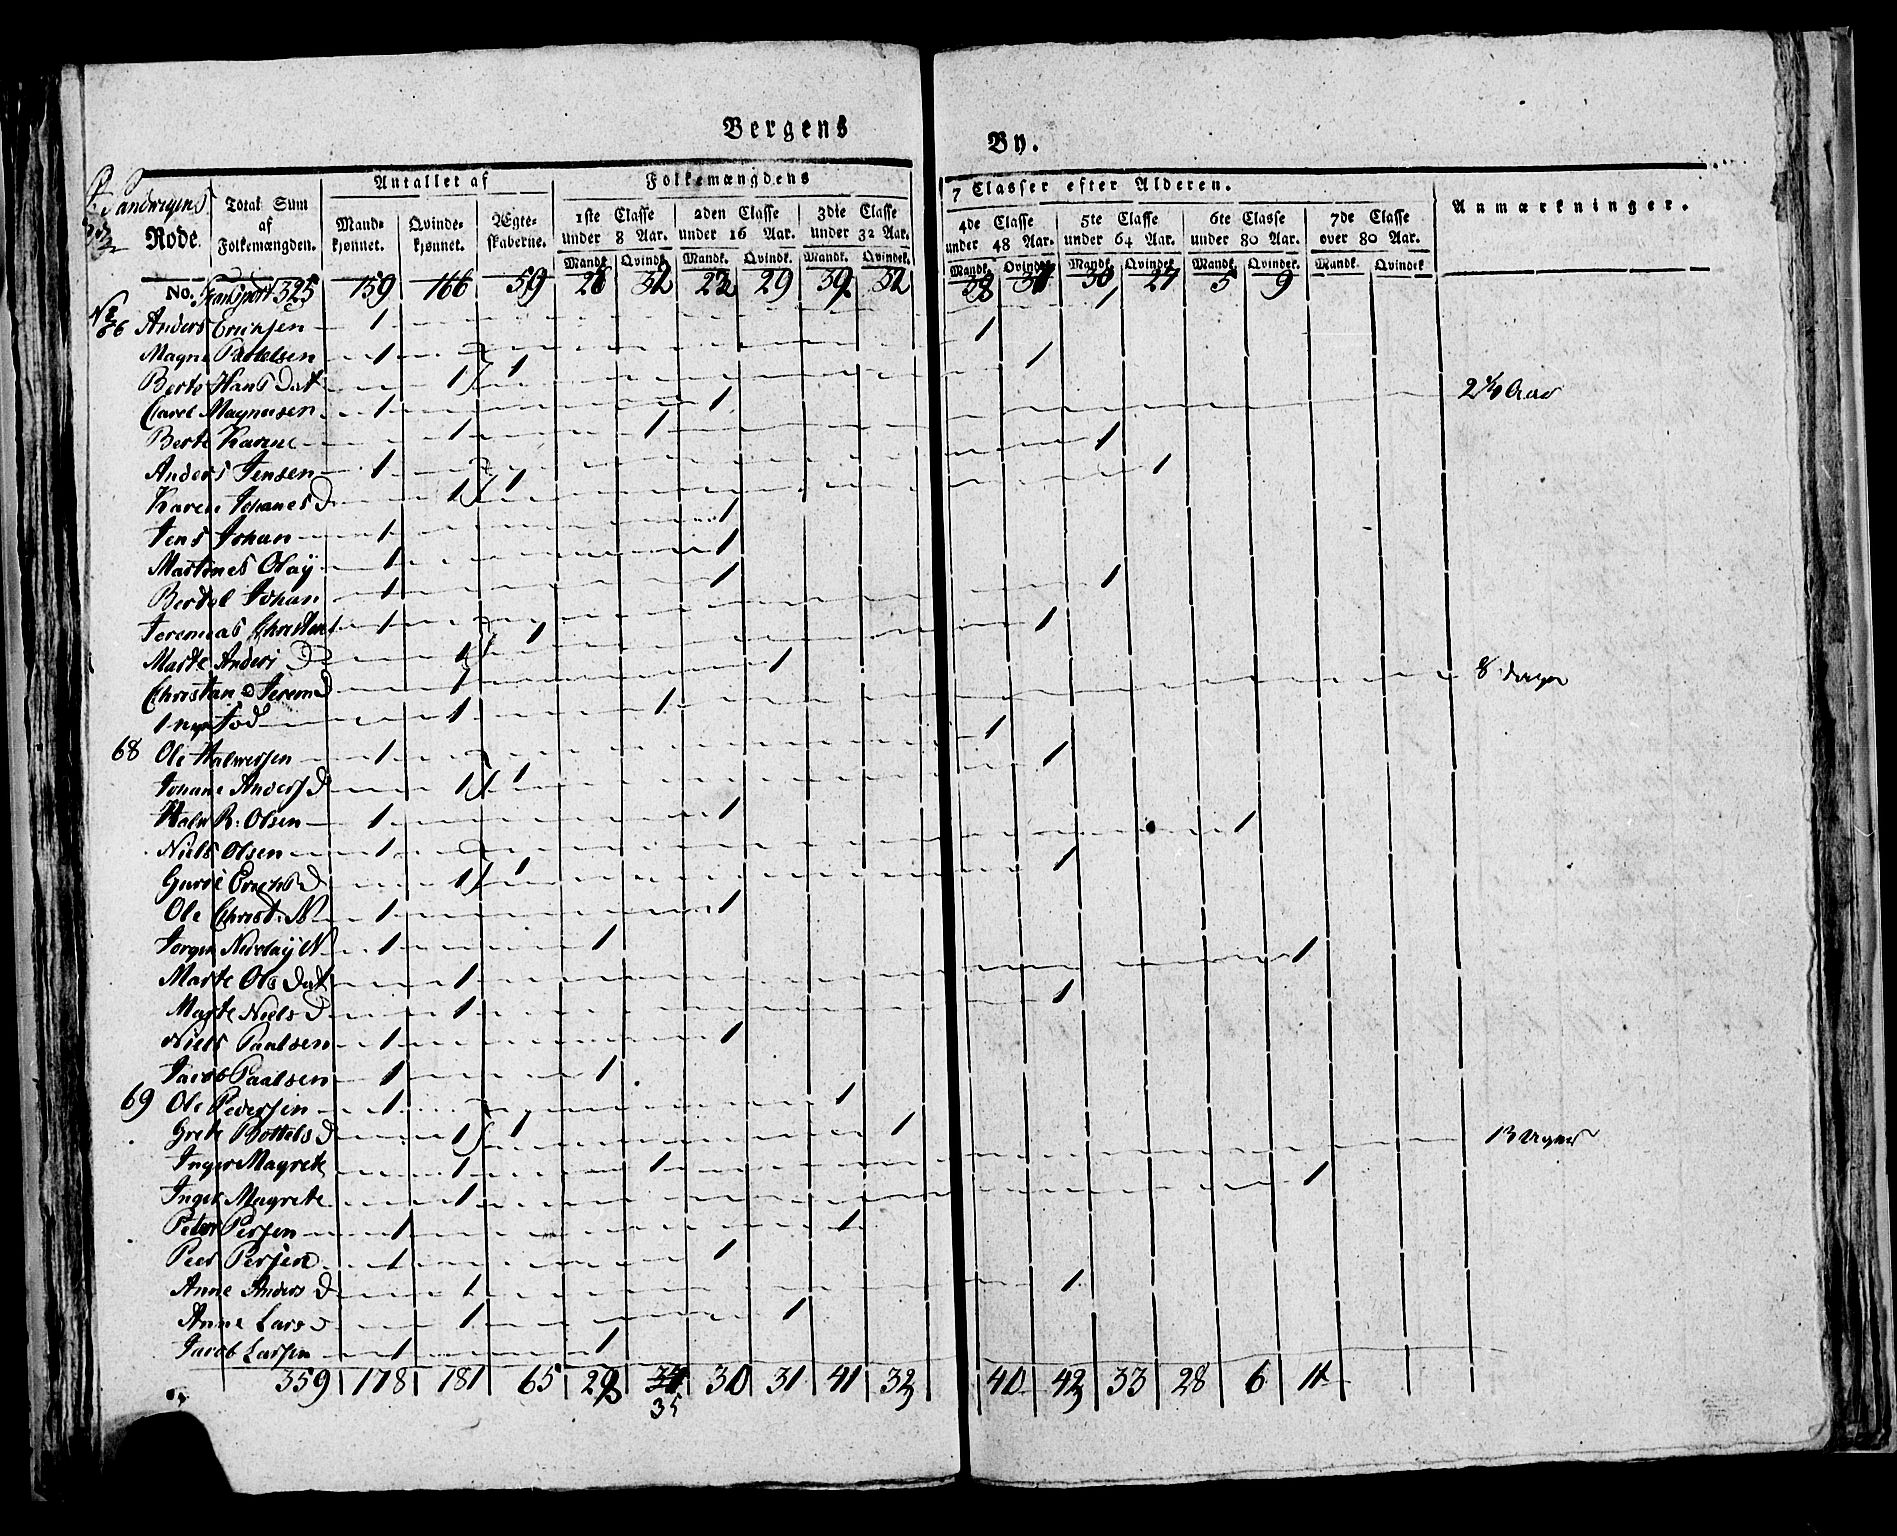 Bergens By.
Sandwigens
Rode.
Total Sum af Folkemængden.
Antallet af
Mandkjønnet. Qvindekjønnet. Ægteskaberne.
Folkemængdens 7 Classer efter Alderen.
1ste Classe under 8 Aar. 2den Classe under 16 Aar. 3die Classe under 32 Aar. 4de Classe under 48 Aar. 5te Classe under 64 Aar. 6te Classe under 80 Aar. 7de Classe over 80 Aar.
Mandk. Qvindk. Mandk. Qvindk. Mandk. Qvindk. Mandk. Qvindk. Mandk. Qvindk. Mandk. Qvindk. Mandk. Qvindk.
Anmærkninger.
No. Transport 325 159 166 59 26 32 22 29 39 32 38 30 27 5 9
Anders Erichsen 1 1
Magne 1 1
Berte Hans Dat 1 1 1
Carel Magnusen 1 1 2 1/2 Aar
Berte Karine 1 1
Anders Jensen 1 1
Karen Johanes D 1 1 1
Jens Johan 1 1
Martines Olay 1 1
Bertel Johan 1 1
Jeremias 1 1
Marte Anders D 1 1 1
Christane Jerem D 1 1
1 1 8 dager
68 Ole Halwersen 1 1
Johane Anders D 1 1 1
Halw R. Olsen 1 1
Niels Olsen 1 1
Gurie Erichs D 1 1 1
Ole Christ. N 1 1
Jørgen Nicolay N 1 1
Marte Ols Dat 1 1
Marte Niels D 1 1
Niels Paalsen 1 1
Jacob Paalsen 1 1
69 Ole Pedersen 1 1
Grete Bottels D 1 1 1
Inger Magrete 1 1 13 Uger
Inger Magrete 1 1
Peter Persen 1 1
Peer Persen 1 1
Anne Anders D 1 1
Anne Lars D 1 1
Jacob Larsen 1 1
359 178 181 65 29 30 31 41 33 40 42 33 28 6 11
35